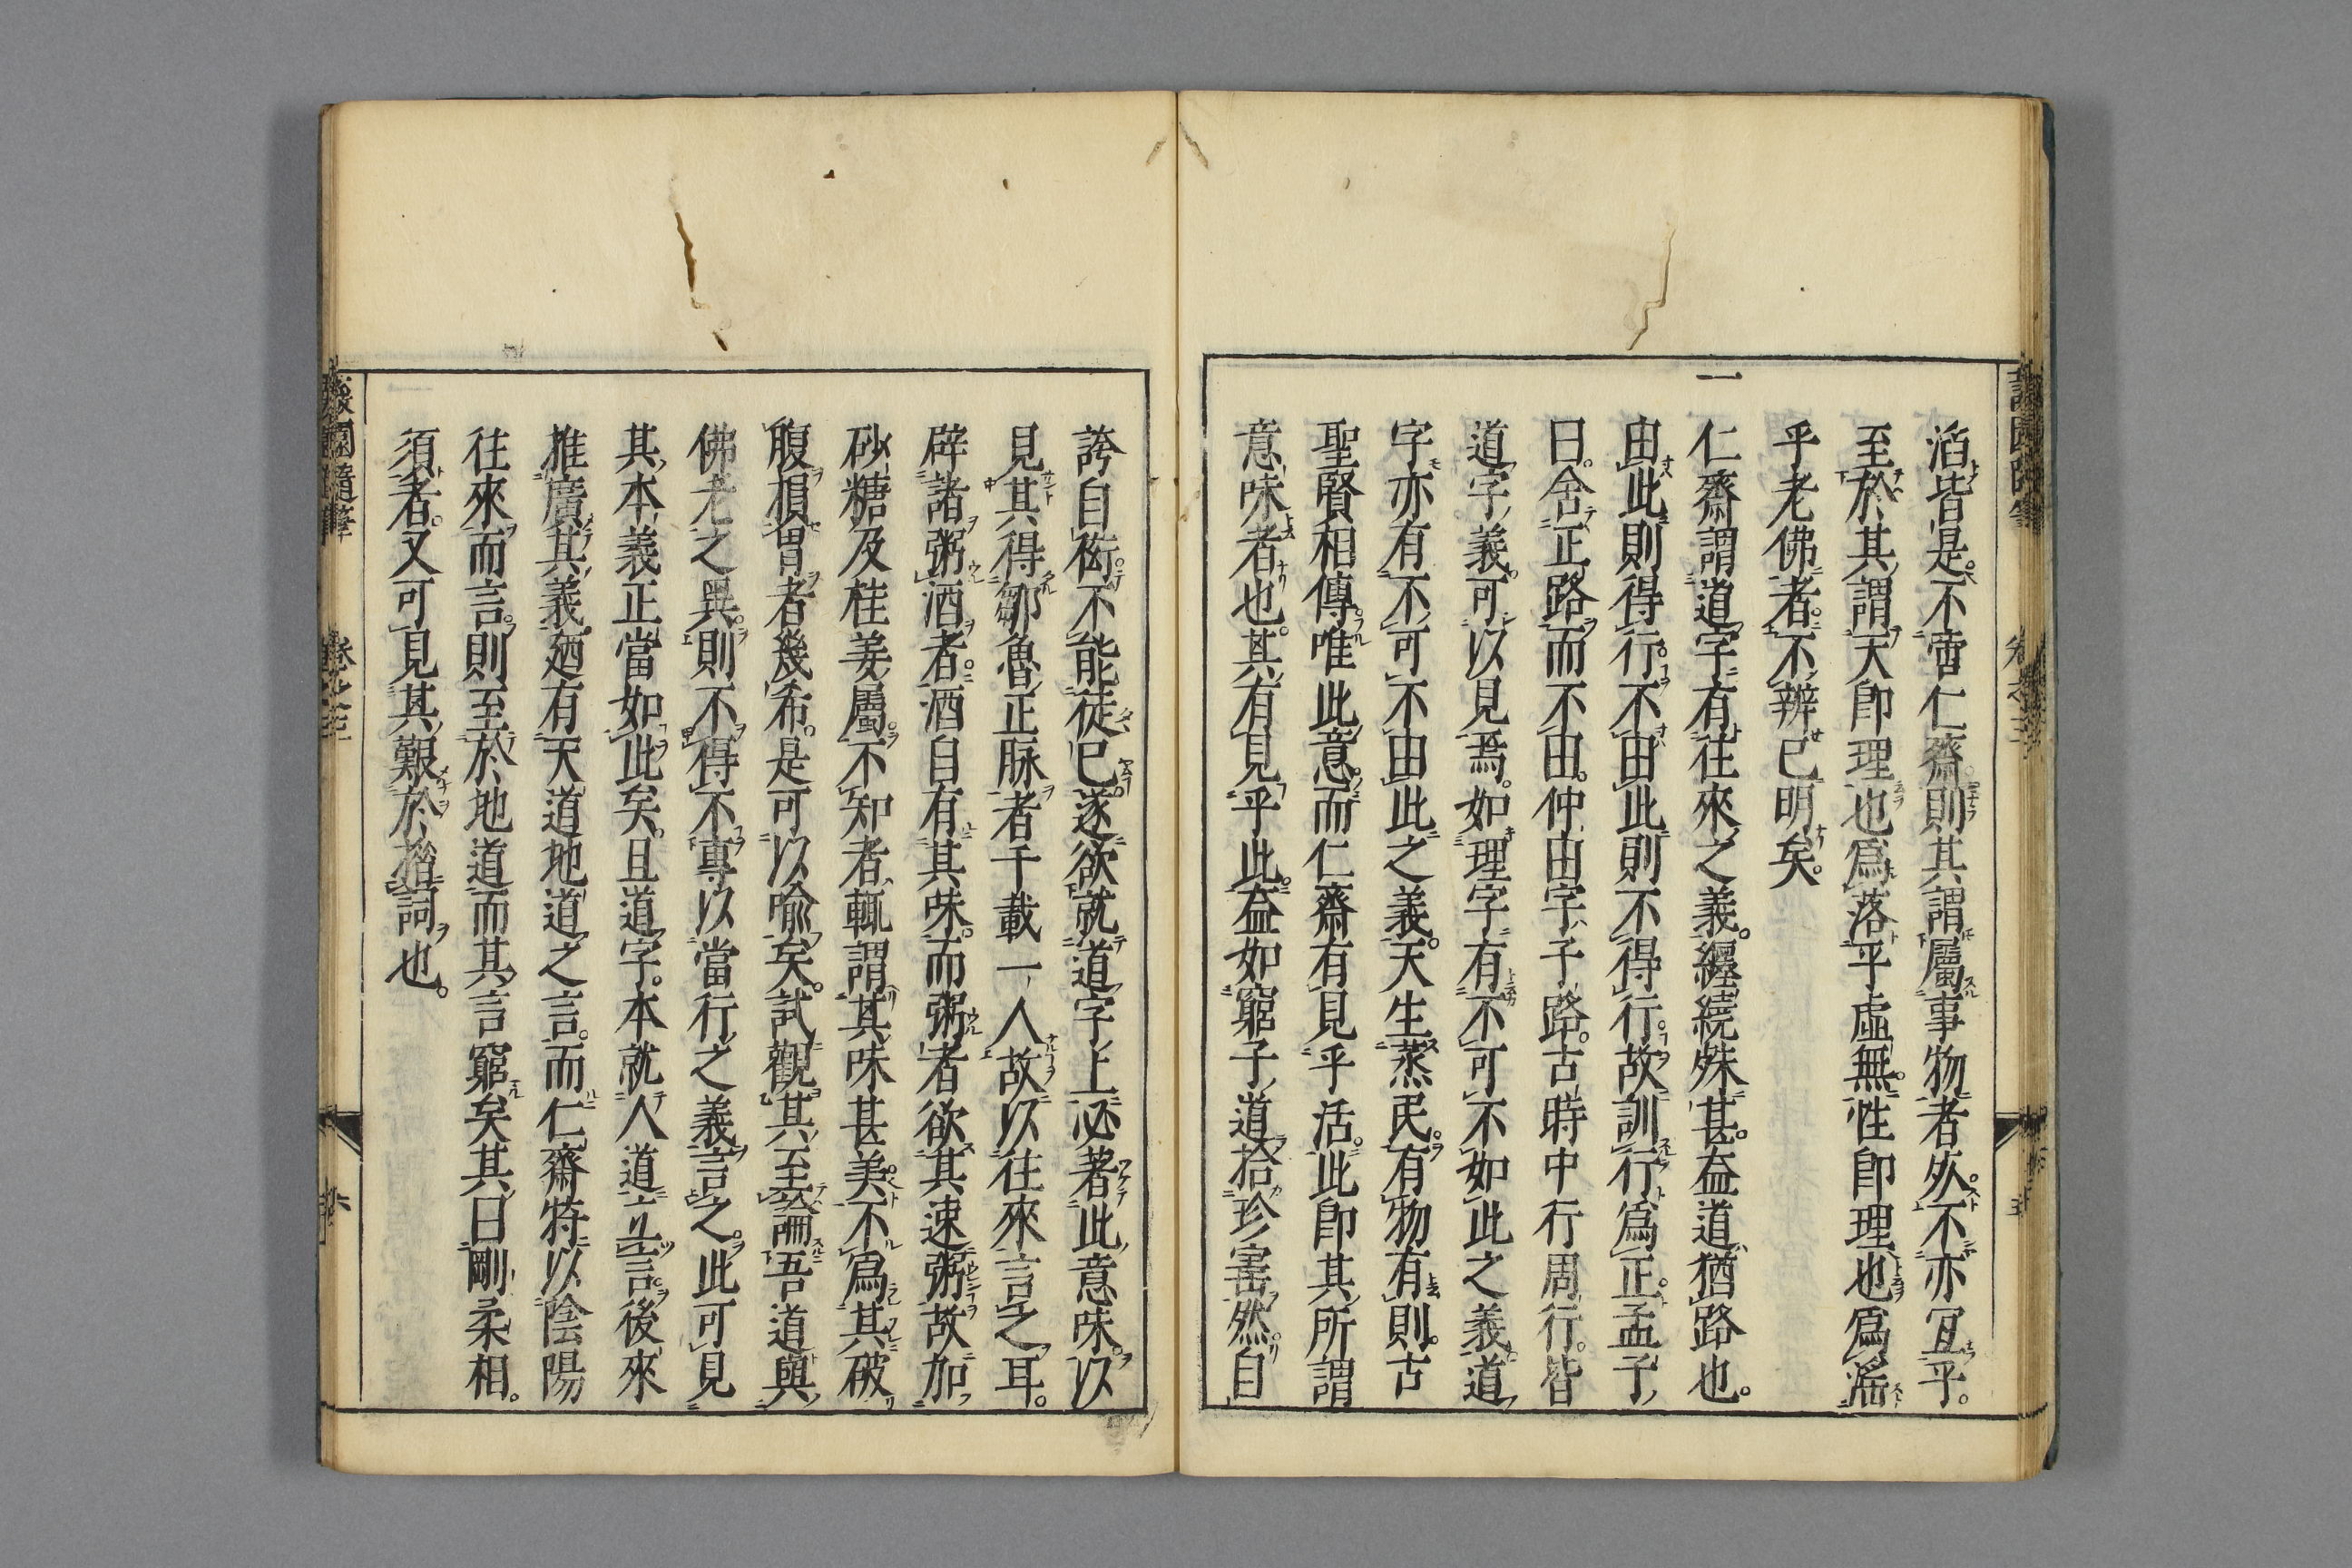 滔皆是不啻仁齋則其謂屬事物者然不亦冝乎
至於其謂天卽理也爲落乎虛無性卽理也爲滛
乎老佛者不辨已明矣
一仁齋謂道字有往來之義纏繞殊甚盖道猶路也
由此則得行不由此則不得行故訓行爲正孟子
曰舍正路而不由仲由字子路古時中行周行皆
道字義可以見焉如理字有不可不如此之義道
字亦有不可不由此之義天生蒸民有物有則古
聖賢相傳唯此意而仁齋有見乎活此卽其所謂
意味者也其有見乎此盖如窮子道拾珍寚然自
誇自衒不能徒已遂欲就道字上必著此意味以
見其得鄒魯正脉者千載一人故以往來言之耳
辟諸粥酒者酒自有其味而粥者欲其速粥故加
砂糖及桂姜屬不知者輒謂其味甚美不爲其破
腹損胃者幾希是可以喩矣試觀其至論吾道與
佛老之異則不得不專以當行之義言之此可見
其本義正當如此矣且道字本就人道立言後來
推廣其義廼有天道地道之言而仁齋特以陰陽
往來而言則至於地道而其言窮矣其曰剛柔相
須者又可見其艱於措詞也
蘐園隨筆 卷之三 六